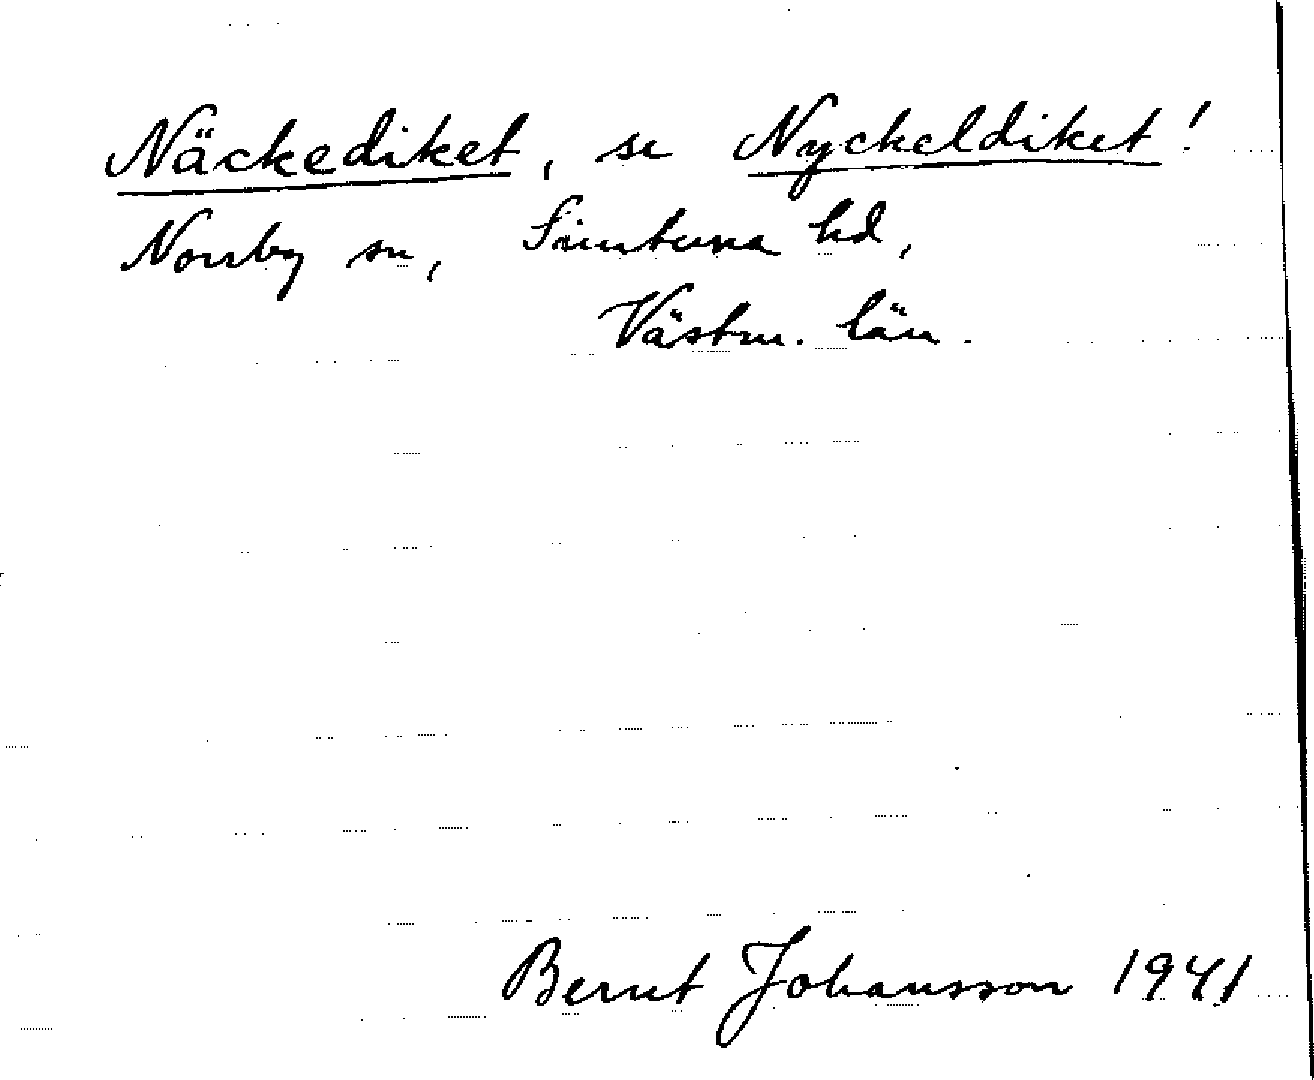 Näckediket, se Nyckeldiket!
Norrby sn, Simtuna hd,
Västm. län.
Bernt Johansson 1941